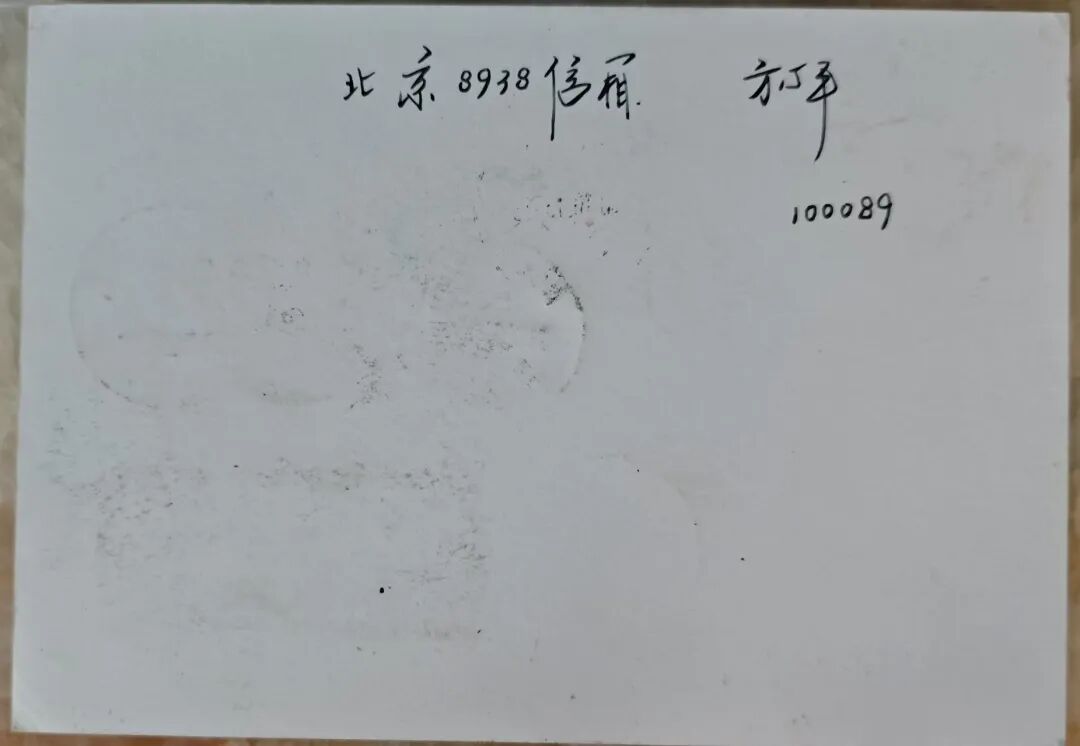 北京8938信箱 方丁平
100089